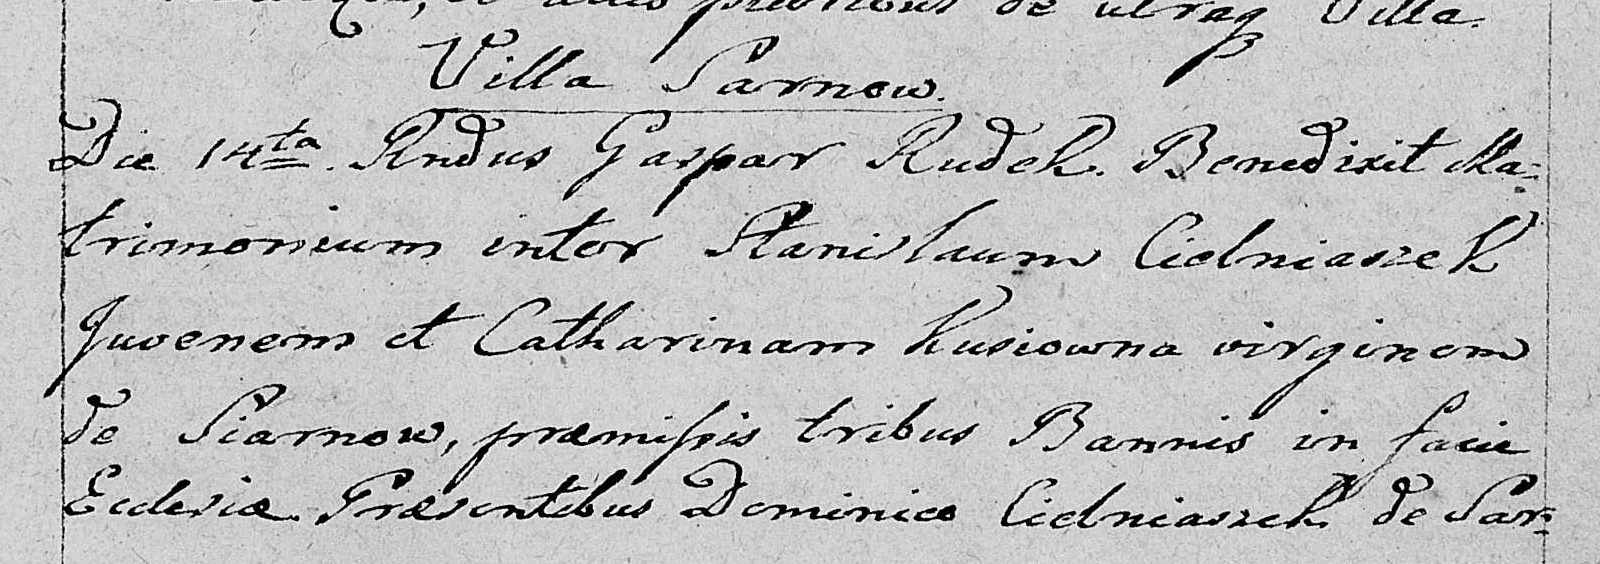 et aliis pluribus de utraq Villa.
Villa Sarnow.
Die 14ta. Rndus Gaspar Rudek. Benedixit Ma=
trimonium inter Stanislaum Cielniaszek
Juvenem et Catharinam Kusiowna virginem
de Siarnow, præmissis tribus Bannis in facie
Eclesiæ. Præsentibus Dominico Cielniaszek de Sar=